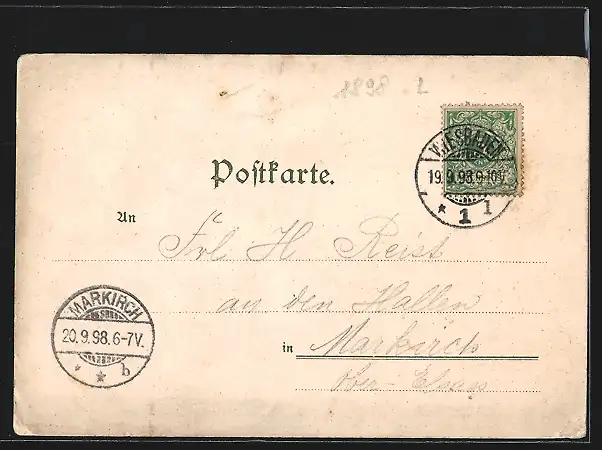 1898
WIESBADEN
19.9.98.9-10V.
* 1 1
Poſtkarte.
An
Frl H Reist
an den Hallen
in Markirch
Ober-Elsass
MARKIRCH
20.9.98.6-7V.
* * b